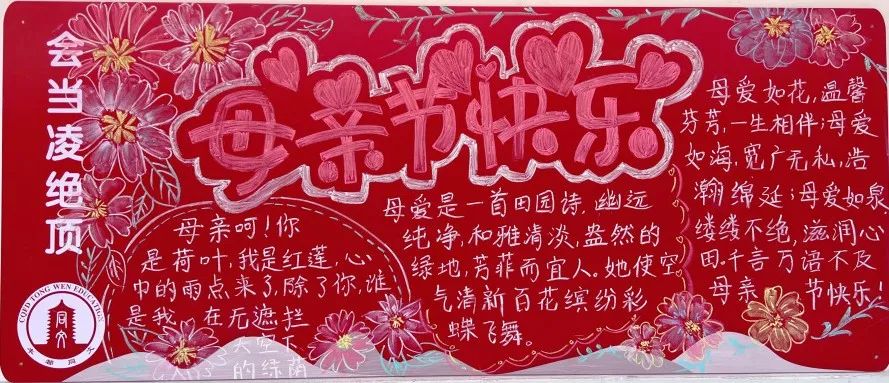 会当凌绝顶
母亲节快乐
母亲呵！你
是荷叶，我是红莲，心
中的雨点来了，除了你，谁
是我 在无遮拦
天空下
的绿荫
母爱是一首田园诗，幽远
纯净，和雅清淡，盎然的
绿地，芳菲而宜人。她使空
气清新百花缤纷彩
蝶飞舞。
母爱如花，温馨
芬芳，一生相伴；母爱
如海，宽广无私，浩
瀚绵延；母爱如泉
缕缕不绝，滋润心
田。千言万语不及
母亲 节快乐！
CQFD TONG WEN EDUCATION